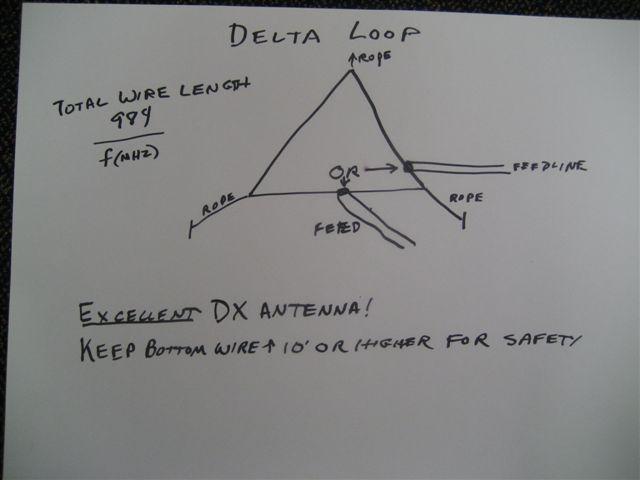 DELTA LOOP
↑ROPE
TOTAL WIRE LENGTH
984
f(MHZ)
OR →
FEEDLINE
ROPE
ROPE
FEED
EXCELLENT DX ANTENNA!
KEEP BOTTOM WIRE ↑ 10' OR HIGHER FOR SAFETY